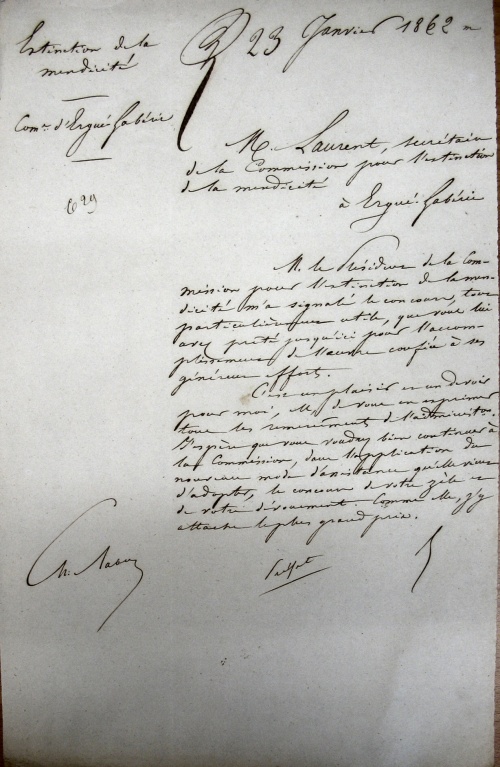 Extinction de la
mendicité
23 Janvier 1862
Com.ne d'Ergué-Gabéric
M. Laurent, secrétaire
de la Commission pour l'extinction
de la mendicité
à Ergué-Gabéric
629
M. le Président de la Com-
mission pour l'extinction de la men-
dicité m'a signalé le concours, tout
particulièrement utile, que vous lui
avez prêté jusqu'ici pour l'accom-
plissement de l'œuvre confiée à ses
généreux efforts.
C'est un plaisir et un devoir
pour moi, M, de vous en exprimer
tous les remerciements de l'administon.
J'espère que vous voudrez bien continuer à
la Commission, dans l'application du
nouveau mode d'assistance qu'elle vient
d'adopter, le concours de votre zèle et
de votre dévouement. Comme elle, j'y
attache le plus grand prix.